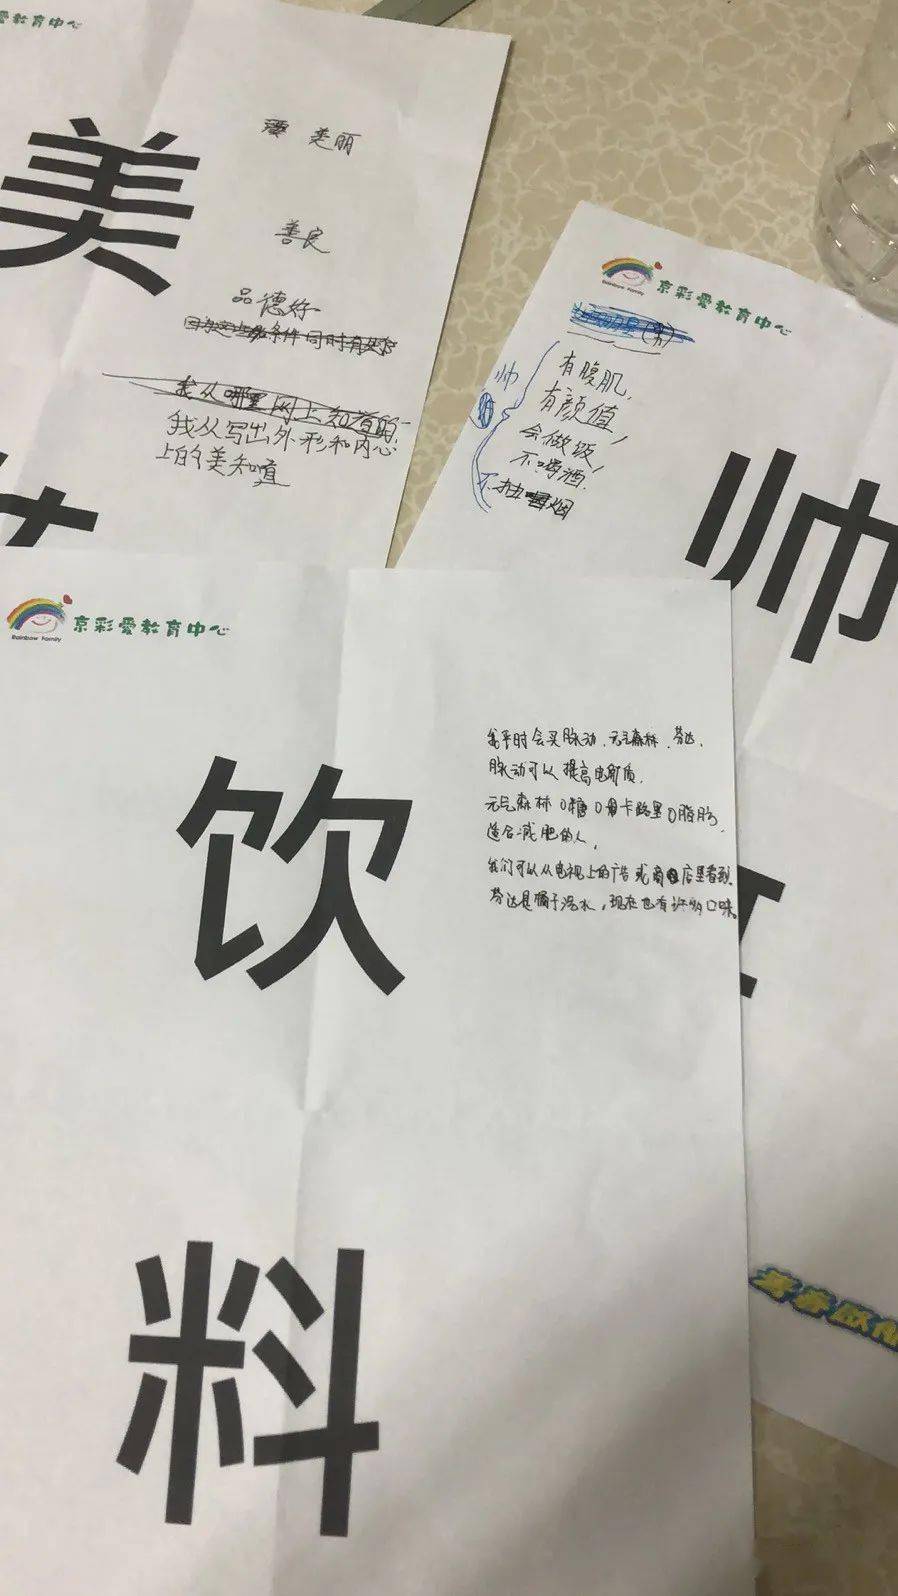 爱教育中心
美
美丽
善良
品德好
我从哪里网上知道的
我从写出外形和内心
上的美知道
Rainbow Family
京彩爱教育中心
(男)
帅
有腹肌,
有颜值,
会做饭,
不喝酒.
不抽烟
帅
Rainbow Family
京彩爱教育中心
饮
料
我平时会买脉动、元气森林、芬达,
脉动可以提高电解质.
元气森林0糖0卡路里0脂肪,
适合减肥的人,
我们可以从电视上的广告或商店里看到.
芬达是橘子汽水,现在也有许多口味。
青春